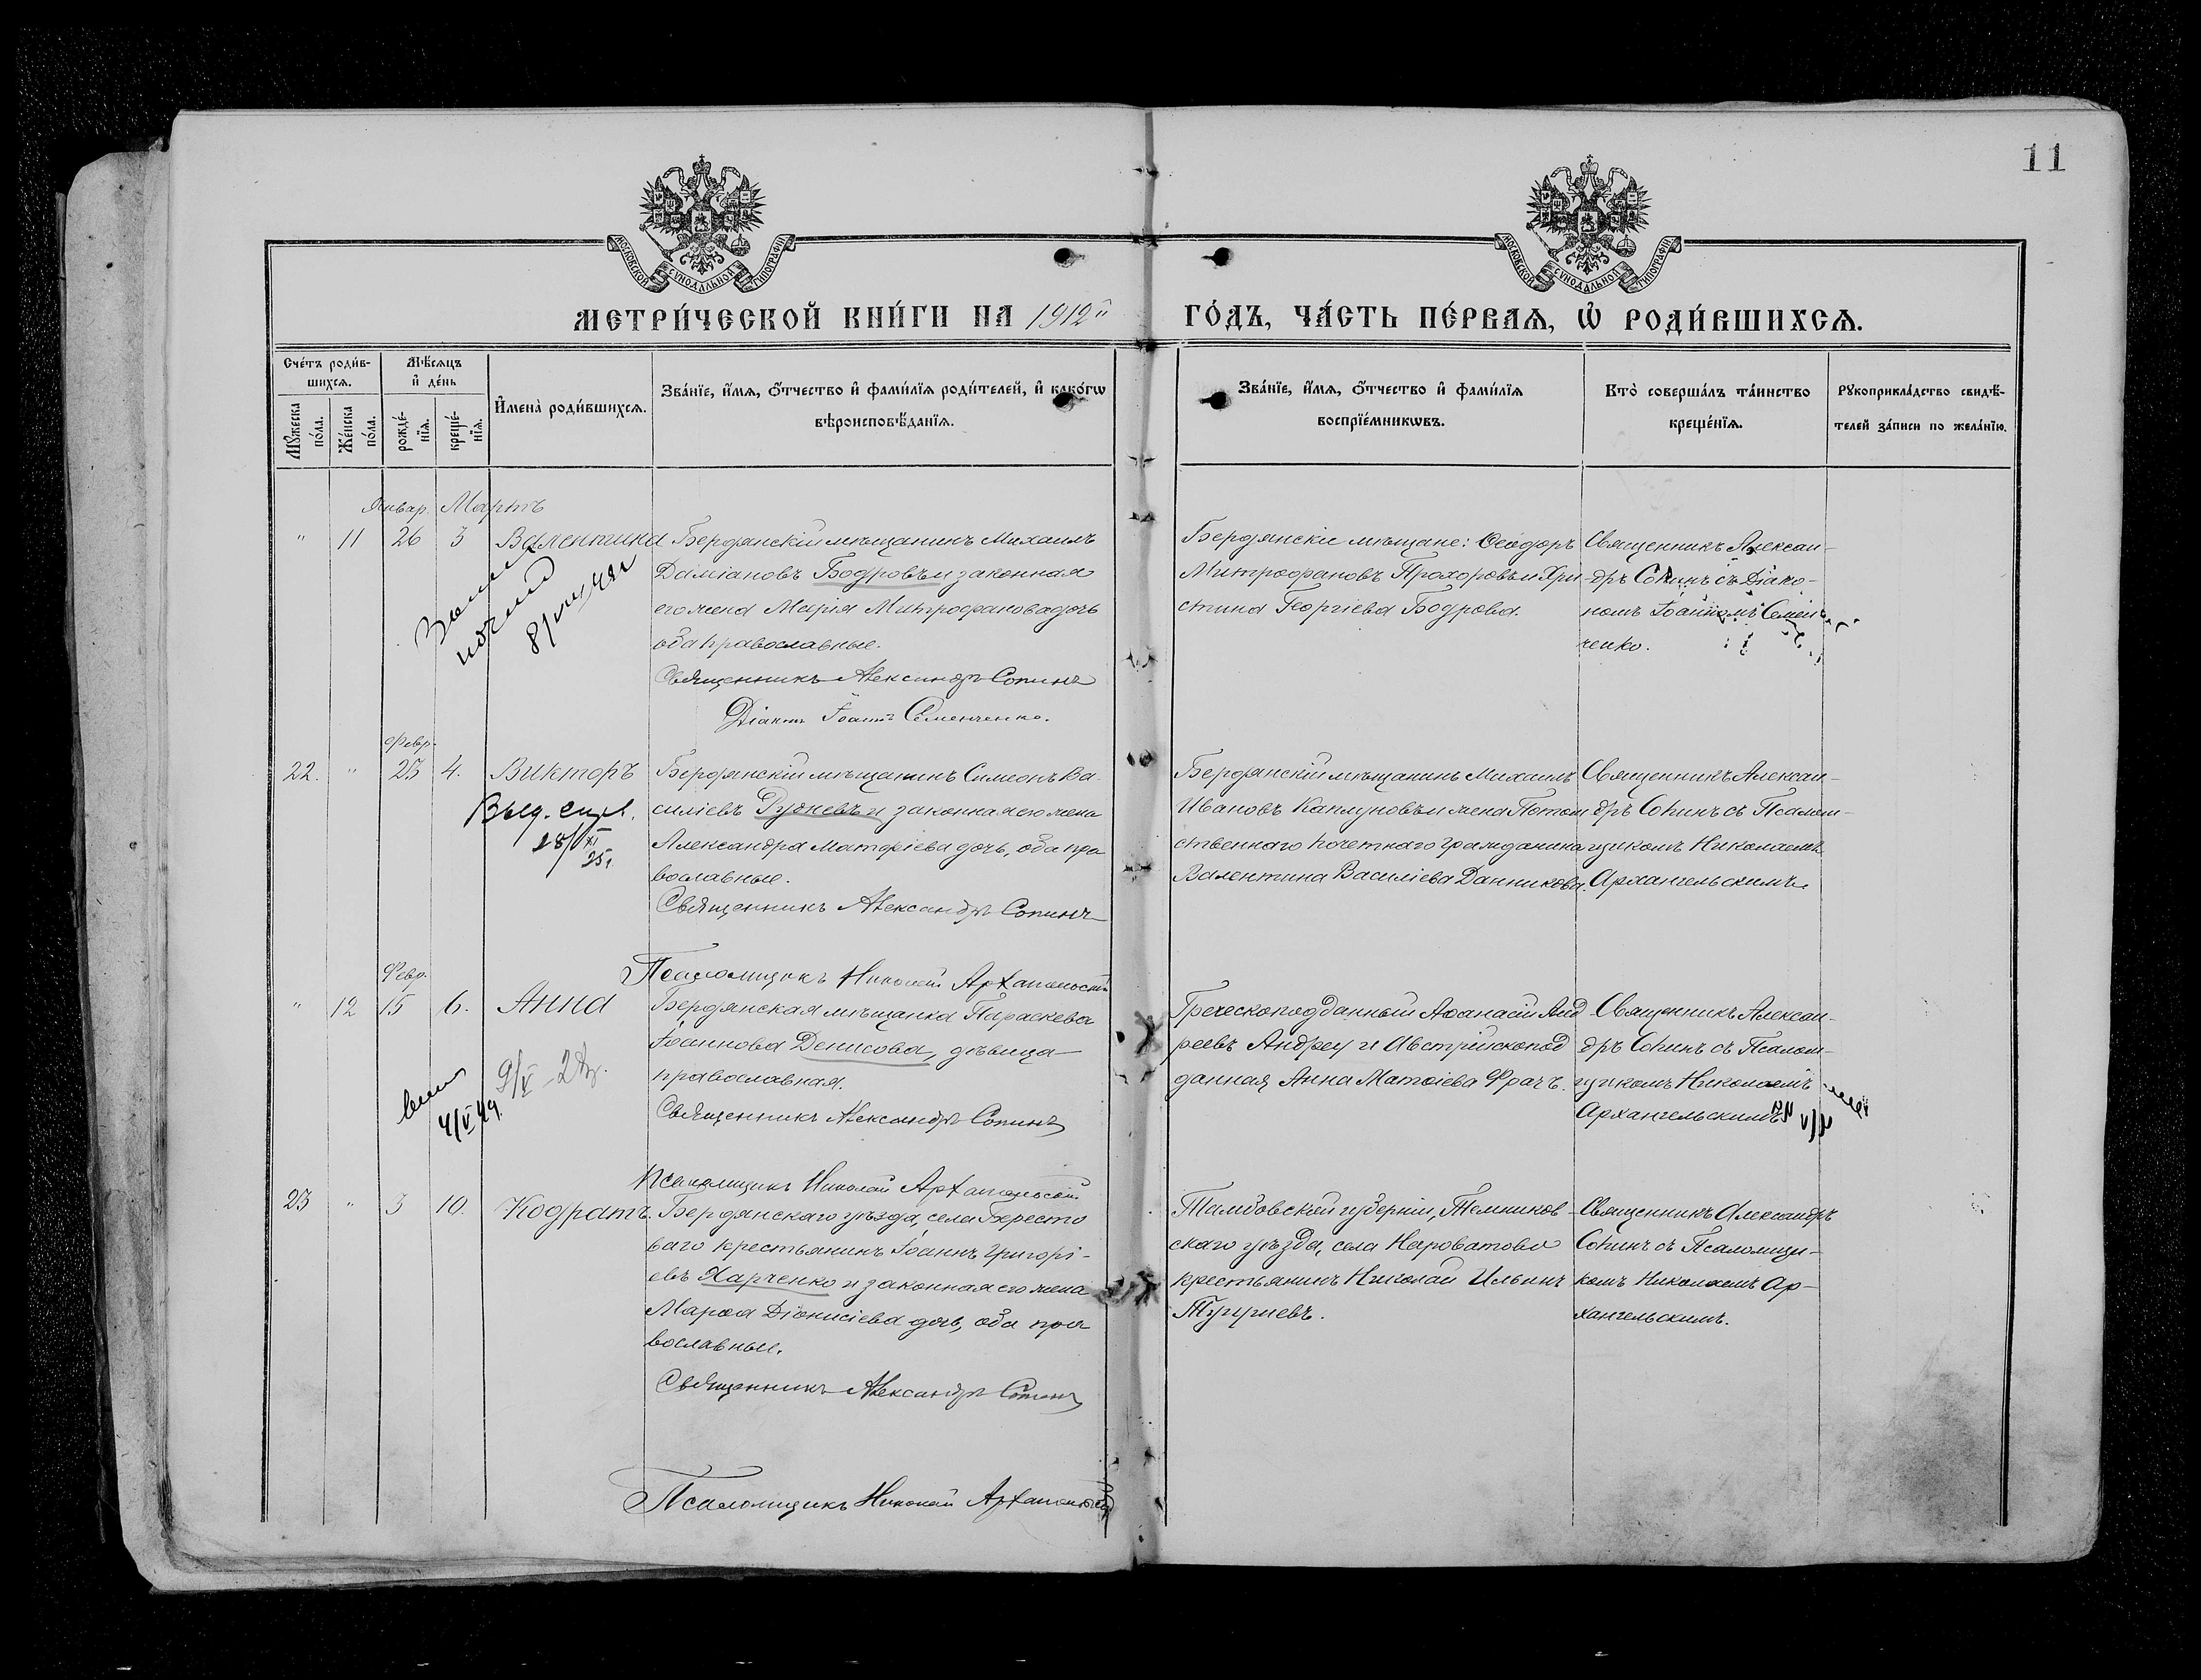 11
МОСКОВСКОЙ СѴНОДАЛЬНОЙ ТИПОГРАФІИ
МОСКОВСКОЙ СѴНОДАЛЬНОЙ ТИПОГРАФІИ
МЕТРИ́ЧЕСКОЙ КНИ́ГИ НА 1912й ГО́ДЪ, ЧА́СТЬ ПЕ́РВАЯ, Ѽ РОДИ́ВШИХСЯ.
Сче́тъ роди́в-
шихся.
Мѣ́сяцъ
и҆ де́нь
Мꙋ́жеска
по́ла.
Же́нска
по́ла.
рожде́-
нїя.
креще́-
нїя.
И҆мена̀ роди́вшихся.
Зва́нїе, и҆́мя, ѻ҆́тчество и҆ фами́лїя роди́телей, и҆ како́гѡ
вѣроисповѣ́данїя.
Зва́нїе, и҆́мя, ѻ҆́тчество и҆ фами́лїя
воспрїе́мникѡвъ.
Кто̀ соверша́лъ та́инство
креще́нїя.
Рꙋкоприкла́дство свидѣ́-
телей за́писи по жела́нїю.
Январ. Мартъ
" 11 26 3 Валентина
Бердянскій мѣщанинъ Михаилъ
Даміановъ Бодровъ и законная
его жена Марія Митрофанова дочь
оба православные.
Священникъ Александръ Сопинъ
Діаконъ Іоаннъ Семенченко.
Бердянскіе мѣщане: Ѳеодоръ
Митрофановъ Прохоровъ и Хри
стина Георгіева Бодрова.
Священникъ Алексан-
дръ Сопинъ съ Діако-
номъ Іоанномъ Семен
ченко.
Февр.
22. " 23 4. Викторъ
Выд.
28/XI
25.
Бердянскій мѣщанинъ Симеонъ Ва-
силіевъ Рудневъ и законная его жена
Александра Матѳіева дочь, оба пра
вославные.
Священникъ Александръ Сопинъ
Псаломщикъ Николай Архангельскій
Бердянскій мѣщанинъ Михаилъ
Ивановъ Каплуновъ и жена Потом
ственнаго почетнаго гражданина
Валентина Василіева Данникова.
Священникъ Алексан-
дръ Сопинъ съ Псалом-
щикомъ Николаемъ
Архангельскимъ.
Февр.
" 12 15 6. Анна
Бердянская мѣщанка Параскева
Іоаннова Денисова, дѣвица
православная.
Священникъ Александръ Сопинъ
Псаломщикъ Николай Архангельскій
Греческоподданный Аѳанасій Анд
реевъ Андреу и Австрійскопод
данная Анна Матѳіева Фрачъ.
Священникъ Алексан-
дръ Сопинъ съ Псалом-
щикомъ Николаемъ
Архангельскимъ
23 " 3 10. Кодратъ.
Бердянскаго уѣзда, села Бересто
ваго крестьянинъ Іоаннъ Григорі-
евъ Харченко и законная его жена
Марѳа Діонисіева дочь, оба пра
вославные.
Священникъ Александръ Сопинъ
Псаломщикъ Николай Архангельскій
Тамбовской губерніи, Темников-
скаго уѣзда, села Нароватово
крестьянинъ Николай Ильинъ
Священникъ Александръ
Сопинъ съ Псаломщи-
комъ Николаемъ Ар-
хангельскимъ.